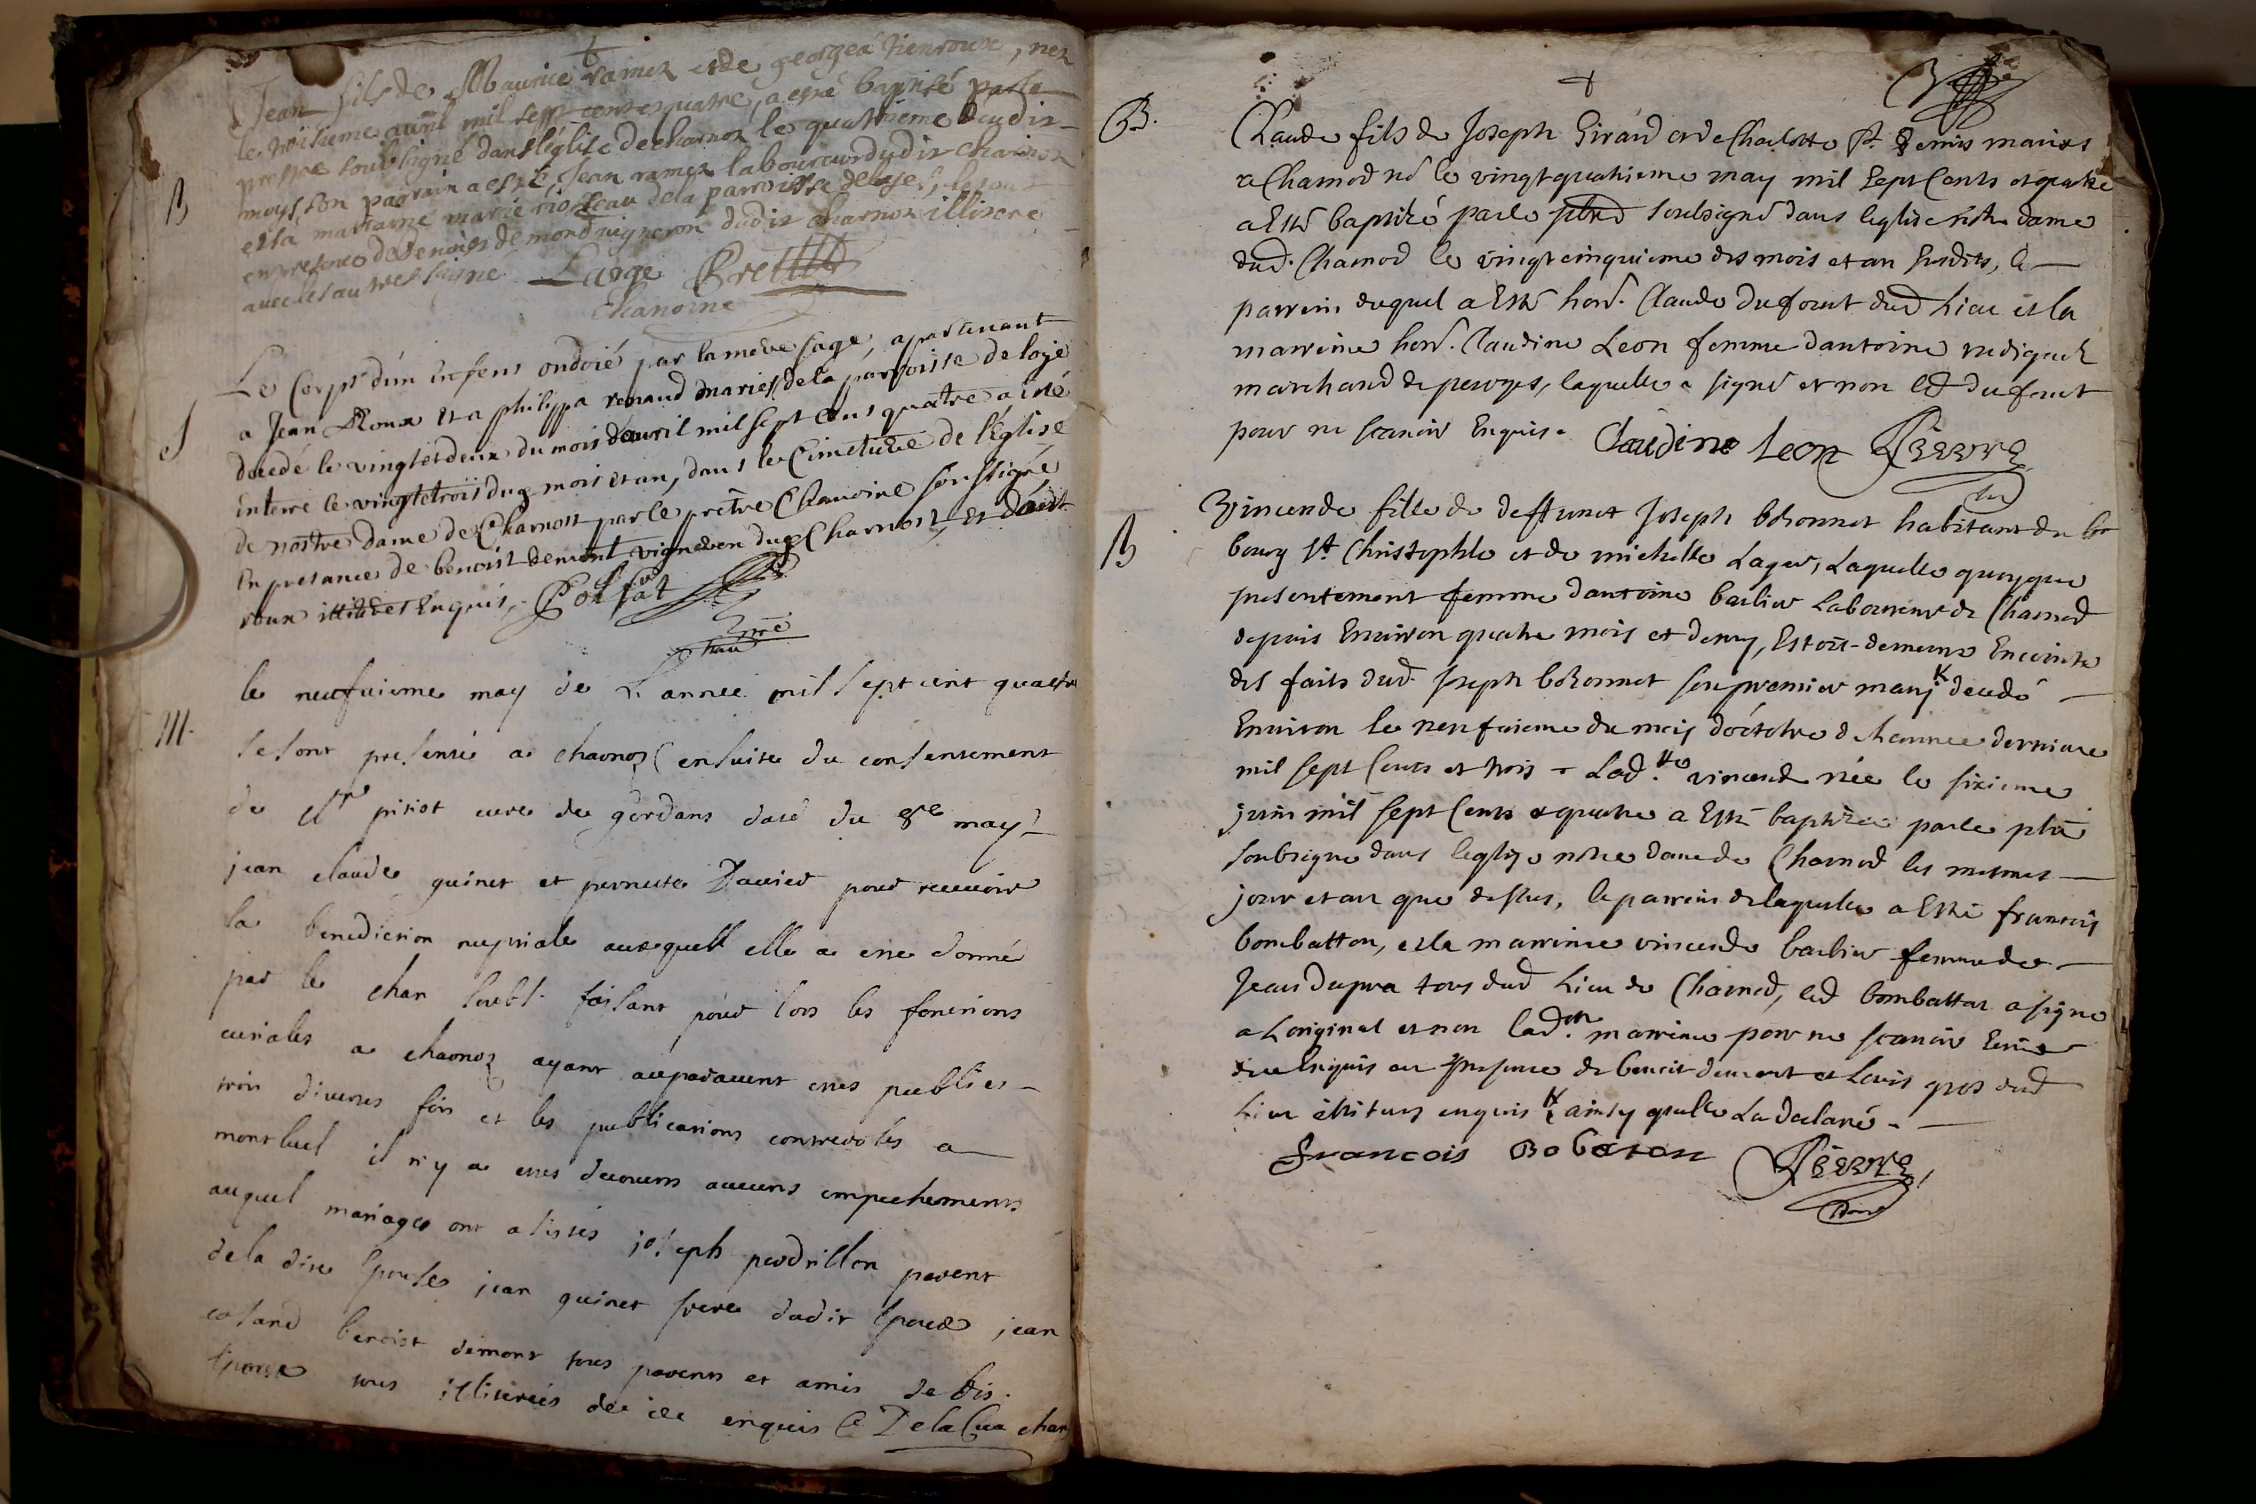 Jean fils de Maurice ramez et de georgea rienroux, nez
le troisieme avril mil sept cents quatre, a esté baptisé par le
prestre soubsigné dans l'église de charnoz le quatrieme dudit
moys, son parrain a esté Jean ramez laboureur dudit charnoz
et la marraine marie de la parroisse de loye, le tout
en presence de benoist demont vigneron dudit charnoz illiteré
avec les autres
chanoine
B
Le Corps d'un enfens ondoié par la mere sage, apartenant
a Jean Roux et a philippa renaud mariés de la parroisse de loye
decedé le vingt et deux du mois d'avril mil sept cens quatre a esté
enterré le vingt et trois dud mois et an, dans le Cimetiere de l'Eglise
de nostre dame de Charnost par le prêtre Chanoine soussigné
En presance de benoist demont vigneron dud Charnost, et dudit
roux illitérés Enquis,
S
le neufvieme may de L'année mil sept cent quatre
M.
se sont presenté a charnoz ensuite du consentement
de Mre piriot curé de gordans daté du 8e may
jean claude guinet et pernette Davied pour recevoir
la benediction nuptiale auxquels elle a esté donné
par le chan soubs. faisant pour lors les fonctions
curiales a charnoz ayant auparavent estés publiés
trois diverses fois et les publications controolés a
montluel il n'y a estés decouvers aucuns empechements
auquel mariage ont assistés joseph perdrillon parent
de la dite Epouse jean guinet frere dudit Epoux jean
cosand benoist demont tous parents et amis desdis.
Epoux tous illiterés de ce enquis DelaCua chan
B.
Claude fils de Joseph Girard et de Charlotte St. Denis mariés
a Charnod né le vingt quatrieme may mil sept Cents et quatre
a Esté baptisé par le pbre soubsigné dans leglise nostre dame
dud. Charnod le vingt cinquieme des mois et an susdits, le
parrein duquel a Esté hon. Claude Dufour dud Lieu et la
marreine hon. Claudine Leon femme dantoine
marchand de peroges, laquelle a signé et non led Dufour
pour ne scavoir Enquis.
Claudine Leon
B
Vincende fille de deffunct Joseph bosonnet habitant du
bourg St Christophle et de michelle Lager, Laquelle quoyque
presentement femme dantoine barlier Laboureur de Charnod
depuis Environ quatre mois et demy, Estoit demeurée Enceinte
des faits dud. Joseph bosonnet son premier mary decedé
Environ le neufvieme du mois d'octobre de Lannee derniere
mil sept Cents et trois - Lad. vincende née le sixieme
juin mil sept Cents et quatre a Esté baptisée par le pbre
soubsigné dans leglise nostre dame de Charnod les mesmes
jour et an que dessus, le parrein de laquelle a Esté francois
bombatton, et la marreine vincende barlier femme de
Jean Dupra tous dud Lieu de Charnod, led bombatton a signé
a Loriginal et non lad. marreine pour ne scavoir
Enquis en presence de benoit demont et Louis gros dud
Lieu illiterés enquis ainsy quelle La declaré.
francois Bobaton